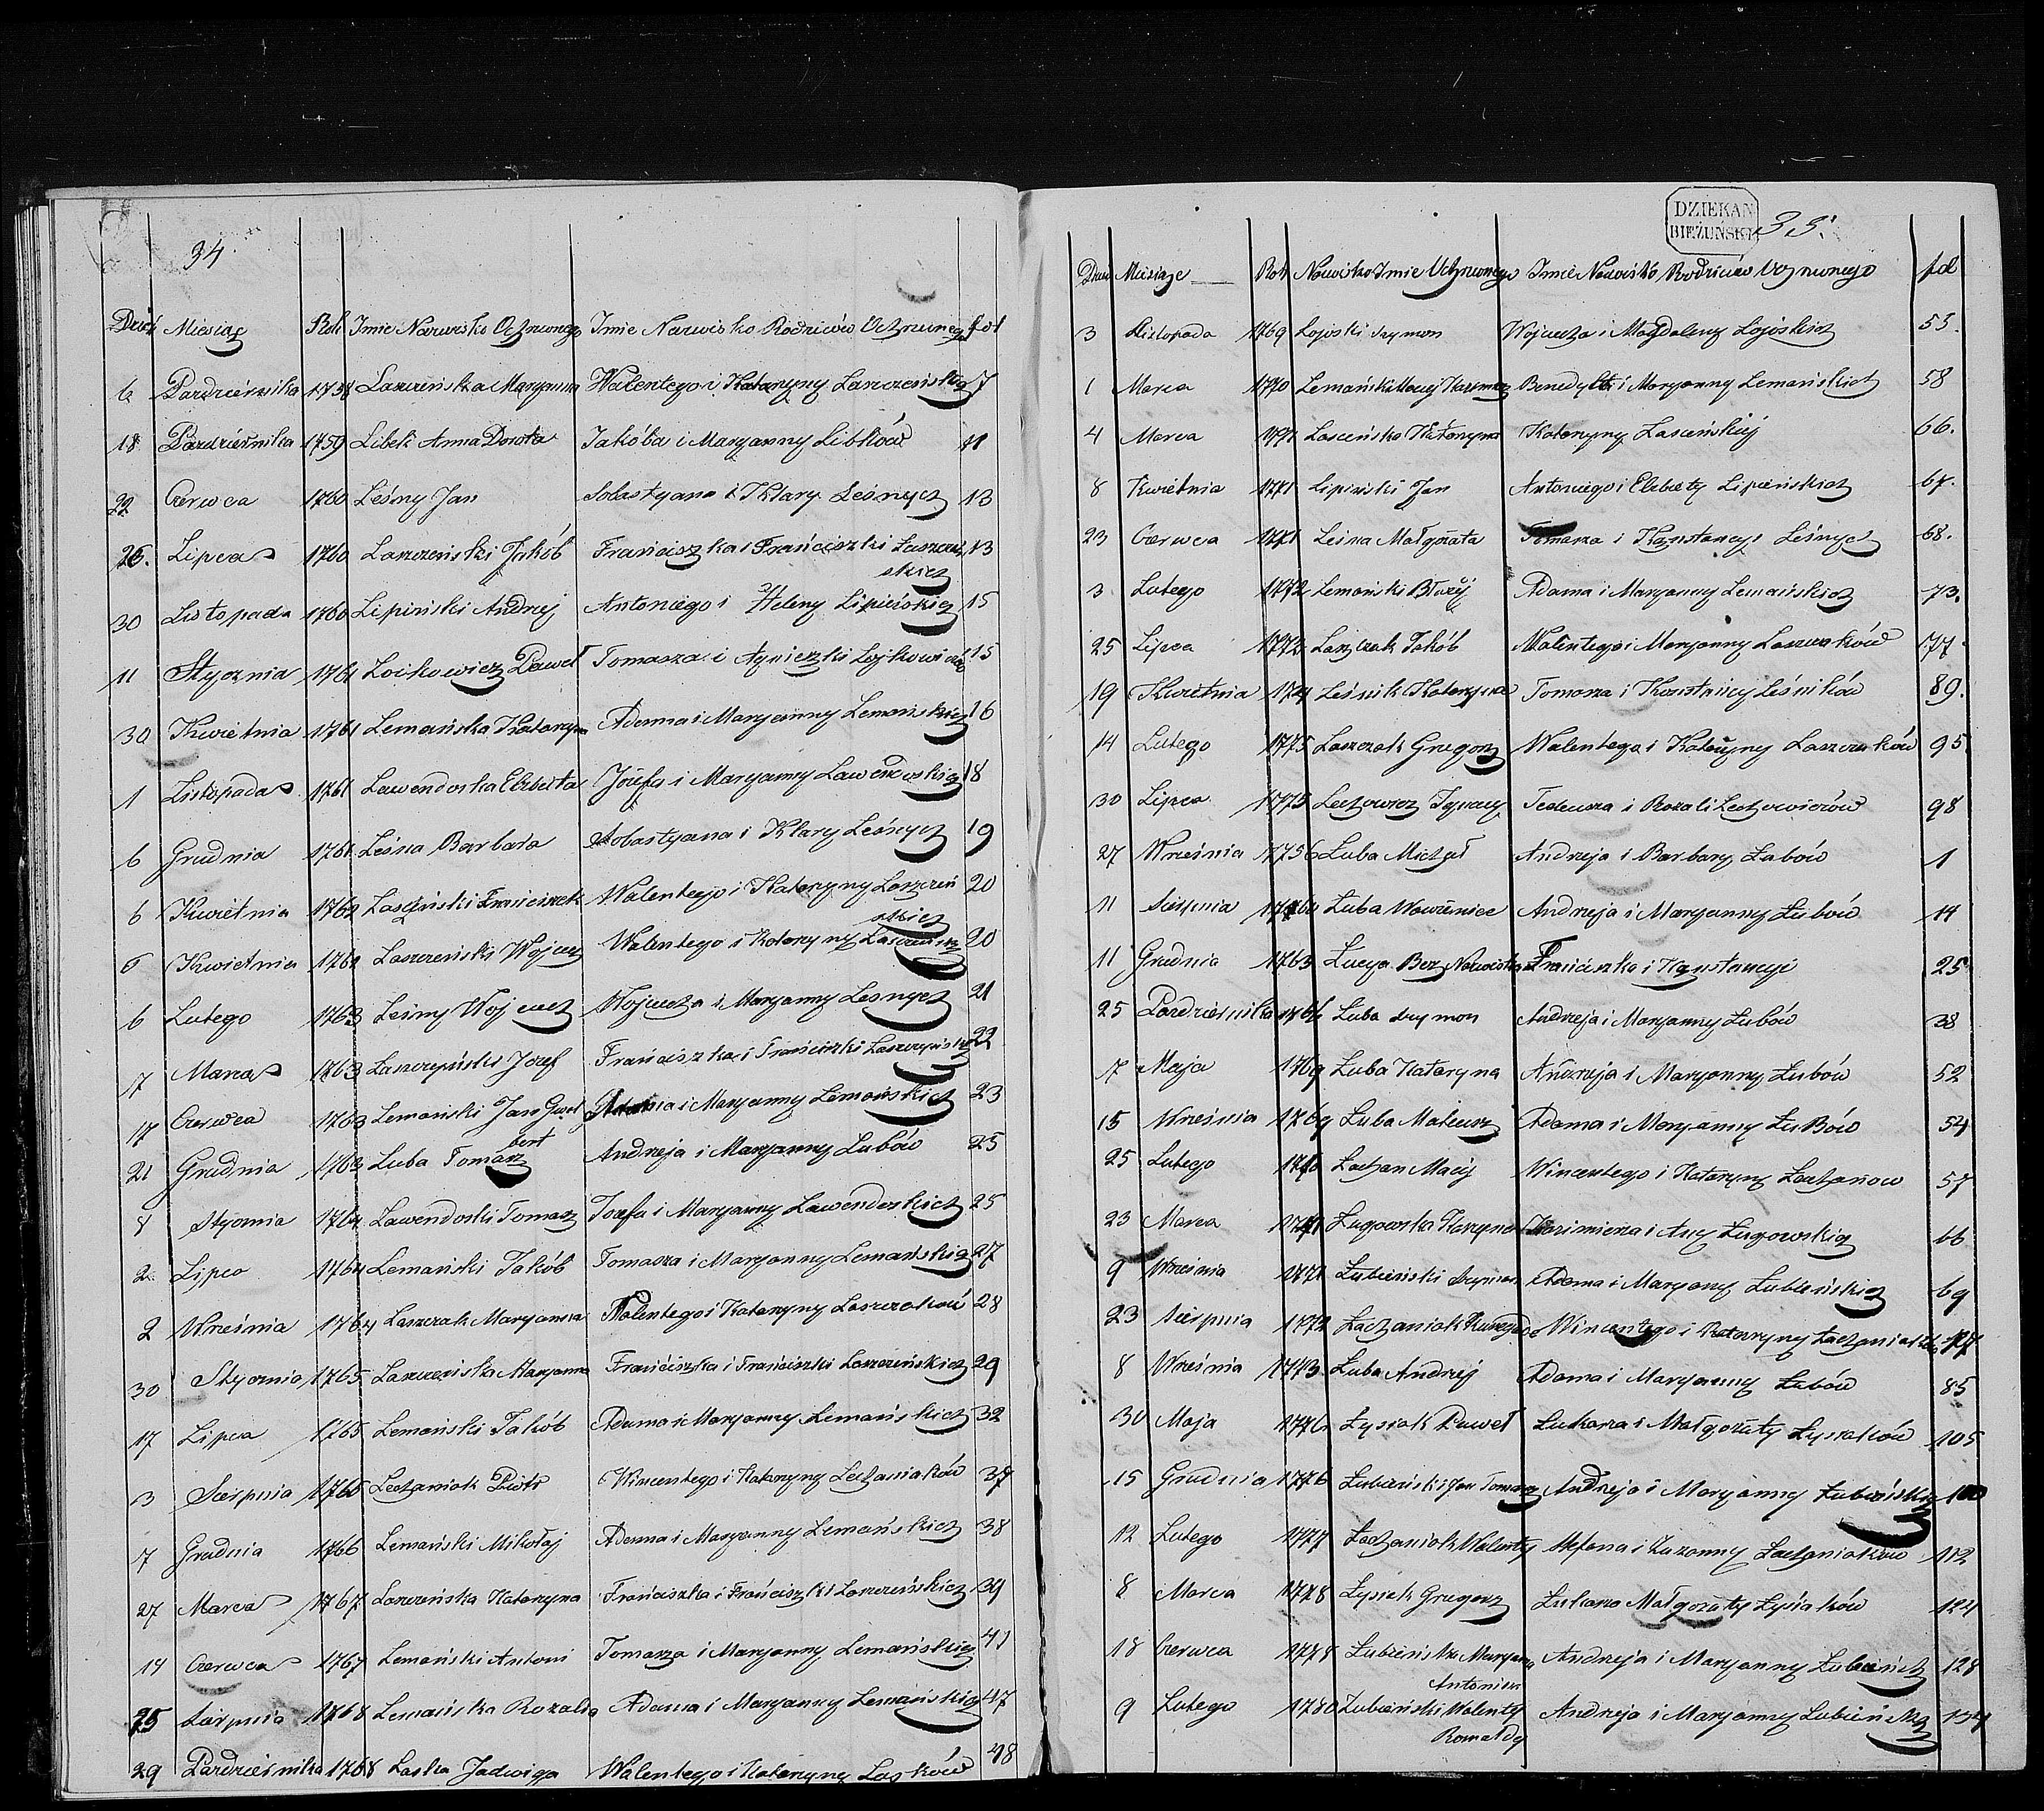 34
Dzień Miesiąc Rok Imie Nazwisko Ochrzconego Imie Nazwisko Rodziców Ochrzconego fol
6 Pazdziernika 1758 Laszczeńska Maryanna Walentego i Katarzyny Laszczeńskich 7
18 Pazdziernika 1759 Libek Anna Dorota Jakóba i Maryanny Libków 11
22 Czerwca 1760 Leśny Jan Sobastyana i Klary Leśnych 13
26. Lipca 1760 Laszczeński Jakób Franciszka i Franciszki Laszczeń 13
skich
30 Listopada 1760 Lipiński Andrzej Antoniego i Heleny Lipieńskich 15
11 Stycznia 1761 Loikowicz Paweł Tomasza i Agnieszki Lojkowiczów 15
30 Kwietnia 1761 Lemańska Katarzyna Adama i Maryanny Lemańskich 16
1 Listopada 1761 Lawendoska Elżbieta Józefa i Maryanny Lawendoskich 18
6 Grudnia 1761 Leśna Barbara Sobastyana i Klary Leśnych 19
6 Kwietnia 1762 Laszczyński Franciszek Walentego i Katarzyny Laszczeń 20
skich
6 Kwietnia 1762 Laszczeński Wojciech Walentego i Katarzyny Laszczeńskich 20
6 Lutego 1763 Leśny Wojciech Wojciecha i Maryanny Lesnych 21
17 Marca 1763 Laszczyński Jozef Franciszka i Franciszki Laszczyńskich 22
17 Czerwca 1763 Lemański Jan Adama i Maryanny Lemańskich 23
bert
21 Grudnia 1763 Luba Tomasz Andrzeja i Maryanny Lubów 25
8 Stycznia 1764 Lawendoski Tomasz Jozefa i Maryanny Lawendoskich 25
2 Lipca 1764 Lemański Jakób Tomasza i Maryanny Lemańskich 27
2 Września 1764 Laszczak Maryanna Walentego i Katarzyny Laszczaków 28
30 Stycznia 1765 Laszczeńska Maryanna Franciszka i Franciszki Laszczeńskich 29
17 Lipca 1765 Lemański Jakób Adama i Maryanny Lemańskich 32
3 Sierpnia 1766 Lechaniak Piotr Wincentego i Katarzyny Lechaniaków 37
7 Grudnia 1766 Lemański Mikołaj Adama i Maryanny Lemańskich 38
27 Marca 1767 Laszczeńska Katarzyna Franciszka i Franciszki Laszczeńskich 39
14 Czerwca 1767 Lemański Antoni Tomasza i Maryanny Lemańskich 41
25 Sierpnia 1768 Lemańska Rozalia Adama i Maryanny Lemańskich 47
29 Pazdziernika 1768 Laska Jadwiga Walentego i Katarzyny Lasków 48
DZIEKAN
BIEŻUNSKI
35.
Dzień Miesiące Rok Nazwisko Imie Ochrzconego Imie Nazwisko Rodziców Ochrzconego fol
3 Listopada 1769 Lojoski Szymon Wojciecha i Magdaleny Lojoskich 53.
1 Marca 1770 Lemański Maciej Kazimierz Benedykta i Maryanny Lemańskich 58
4 Marca 1771 Lasceńska Katarzyna Katarzyny Lasceńskiéj 66.
8 Kwietnia 1771 Lipiński Jan Antoniego i Elzbiety Lipieńskich 67.
23 Czerwca 1771 Leśna Małgorzata Tomasza i Konstancyi Leśnych 68.
3 Lutego 1772 Lemański Błażéj Adama i Maryanny Lemańskich 73.
25 Lipca 1772 Laszczak Jakób Walentego i Maryanny Laszczaków 77
19 Kwietnia 1774 Leśnik Katarzyna Tomasza i Konstancyi Leśników 89.
14 Lutego 1775 Laszczak Grzegorz Walentego i Katarzyny Laszczaków 95
30 Lipca 1775 Lechowicz Ignacy Tadeusza i Rozali Lechowiczów 98
27 Września 1756 Łuba Michał Andrzeja i Barbary Łubów 1
11 Sierpnia 1760 Łuba Wawrzeniec Andrzeja i Maryanny Łubów 14
11 Grudnia 1763 Łucya Bez Nazwiska Franciszka i Konstancyi 25
25 Pazdziernika 1766 Łuba Szymon Andrzeja i Maryanny Łubów 38
7 Maja 1769 Łuba Katarzyna Andrzeja i Maryanny Łubów 52
15 Września 1769 Łuba Mateusz Adama i Maryanny Łubów 54
25 Lutego 1770 Łachan Maciej Wincentego i Katarzyny Łachanow 57
23 Marca 1771 Ługowska Kazimierza i Anny Ługowskich 66
9 Września 1771 Łubieński Szymon Adama i Maryany Łubieńskich 69
23 Sierpnia 1772 Łachaniak Wincentego i Katarzyny Łachaniaków 77
8 Września 1773 Łuba Andrzej Adama i Maryanny Łubów 85
30 Maja 1776 Łysiak Paweł Łukasza i Małgorzaty Łysiaków 105
15 Grudnia 1776 Łubieński Jan Tomasz Andrzeja i Maryanny Łubieńskich
12 Lutego 1777 Łachaniak Walenty Stefana i Zuzanny Łachaniaków 112
8 Marca 1778 Łysiak Grzegorz Łukasza Małgorzaty Łysiaków 124
18 Czerwca 1778 Łubieńska Maryanna Andrzeja i Maryanny Łubieńskich 128
Antonina
9 Lutego 1780 Łubieński Walenty Andrzeja i Maryanny Łubieńskich 134
Romałdy